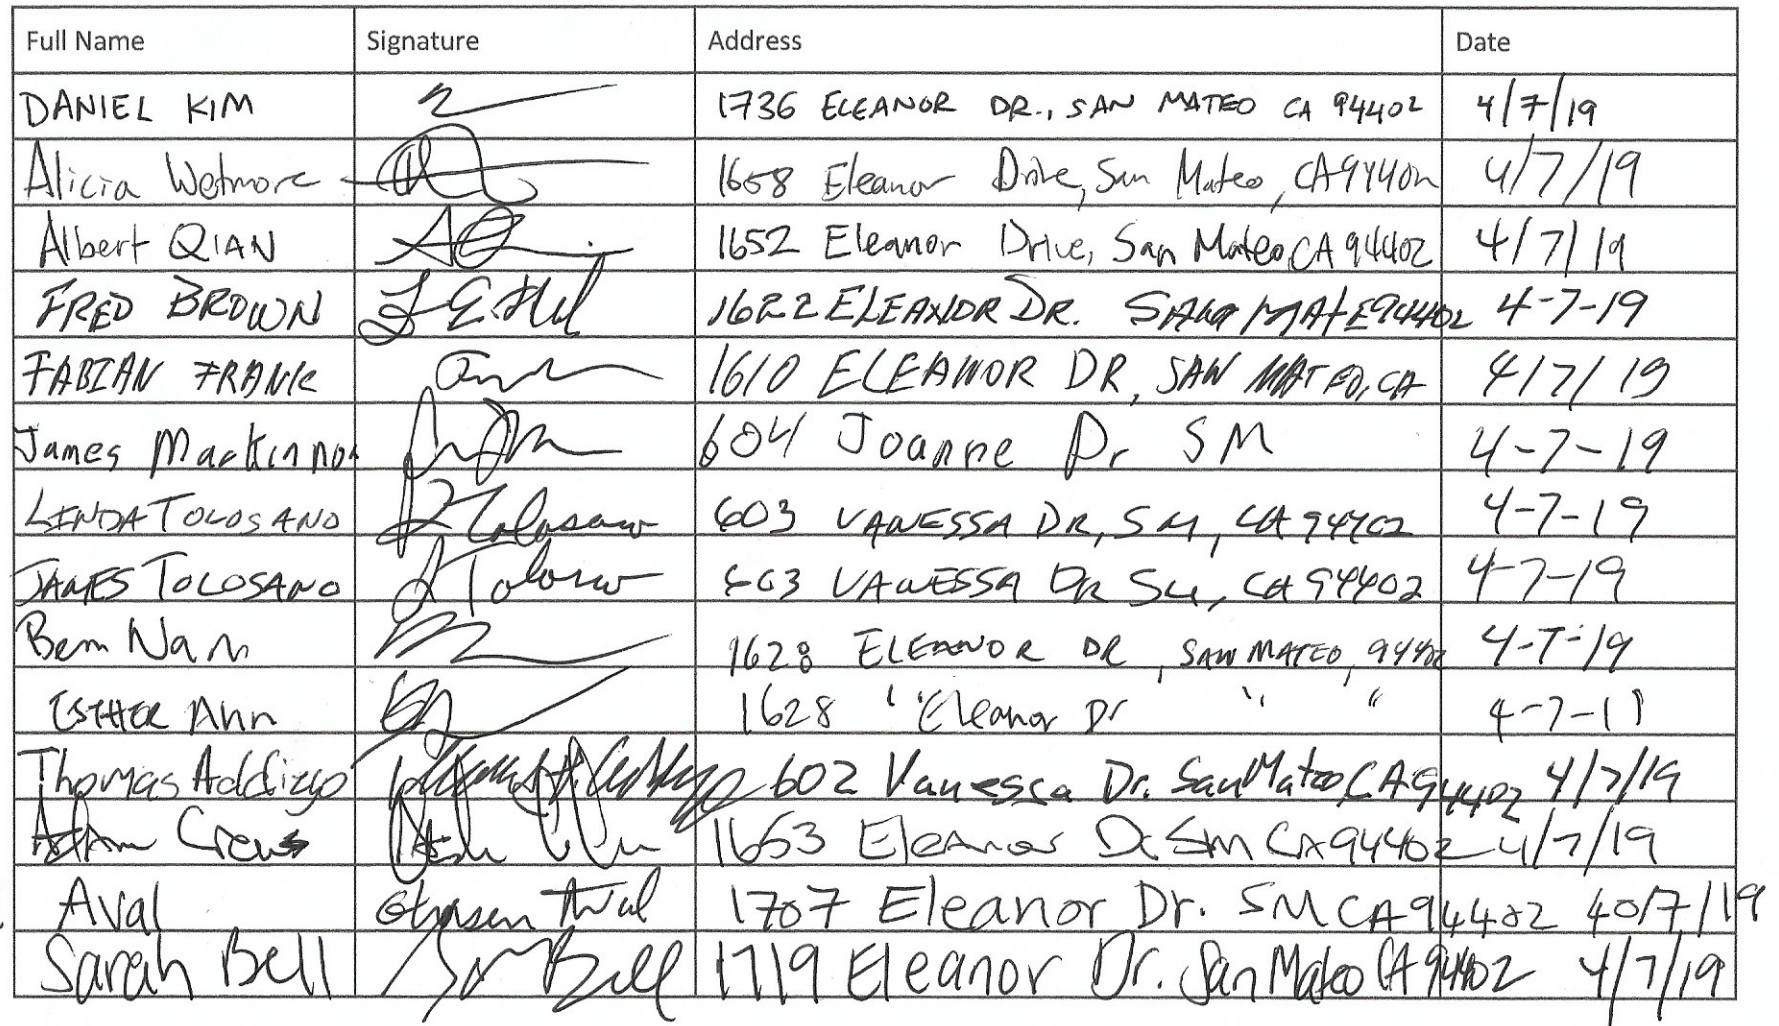 Full Name Signature Address Date
DANIEL KIM 1736 ELEANOR DR., SAN MATEO CA 94402 4/7/19
Alicia Wetmore 1658 Eleanor Drive, San Mateo, CA 94402 4/7/19
Albert QIAN 1652 Eleanor Drive, San Mateo, CA 94402 4/7/19
FRED BROWN 1622 ELEANOR DR. 94402 4-7-19
FABIAN FRANK 1610 ELEANOR DR, SAN MATEO, CA 4/7/19
James Mackinnon 604 Joanne Dr SM 4-7-19
LINDA TOLOSANO L Tolosano 603 VANESSA DR, SM, CA 94402 4-7-19
JAMES TOLOSANO J Tolosano 603 VANESSA DR SM, CA 94402 4-7-19
Ben Nam 1628 ELEANOR DR, SAN MATEO, 94402 4-7-19
ESTHER Ahn 1628 "Eleanor Dr " " 4-7-19
Thomas Addiego 602 Vanessa Dr. San Mateo, CA 94402 4/7/19
Crews 1653 Eleanor Dr SM CA 94402 4/7/19
Aval Aval 1707 Eleanor Dr. SM CA 94402 /7/19
Sarah Bell Bell 1719 Eleanor Dr. San Mateo CA 94402 4/7/19